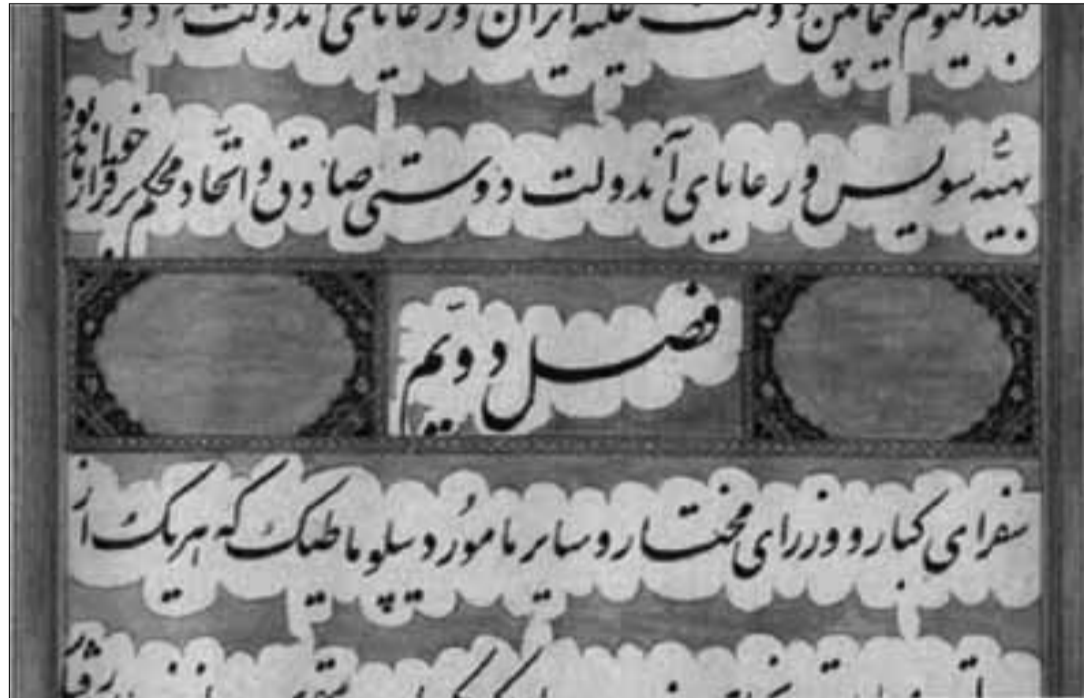 بعد الیوم فیمابین دولت علیه ایران و رعایای آندولت و دولت
بهیّه سویس و رعایای آندولت دوستی صادق و اتّحاد محکم برقرار خواهد بود
فصل دویّم
سفرای کبار و وزرای مختار و سایر مامور دیپلوماطیک که هریک از